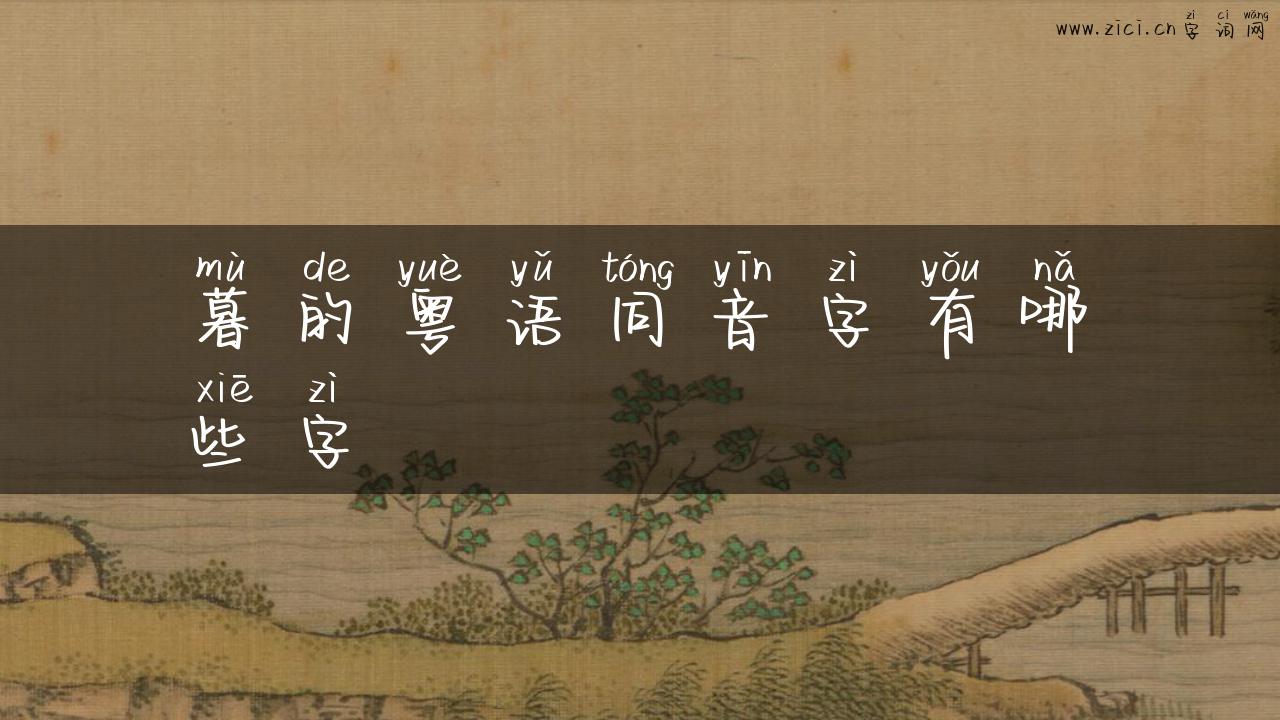 zì cí wǎng
www.zici.cn字词网
mù de yuè yǔ tóng yīn zì yǒu nǎ
暮的粤语同音字有哪
xiē zì
些字